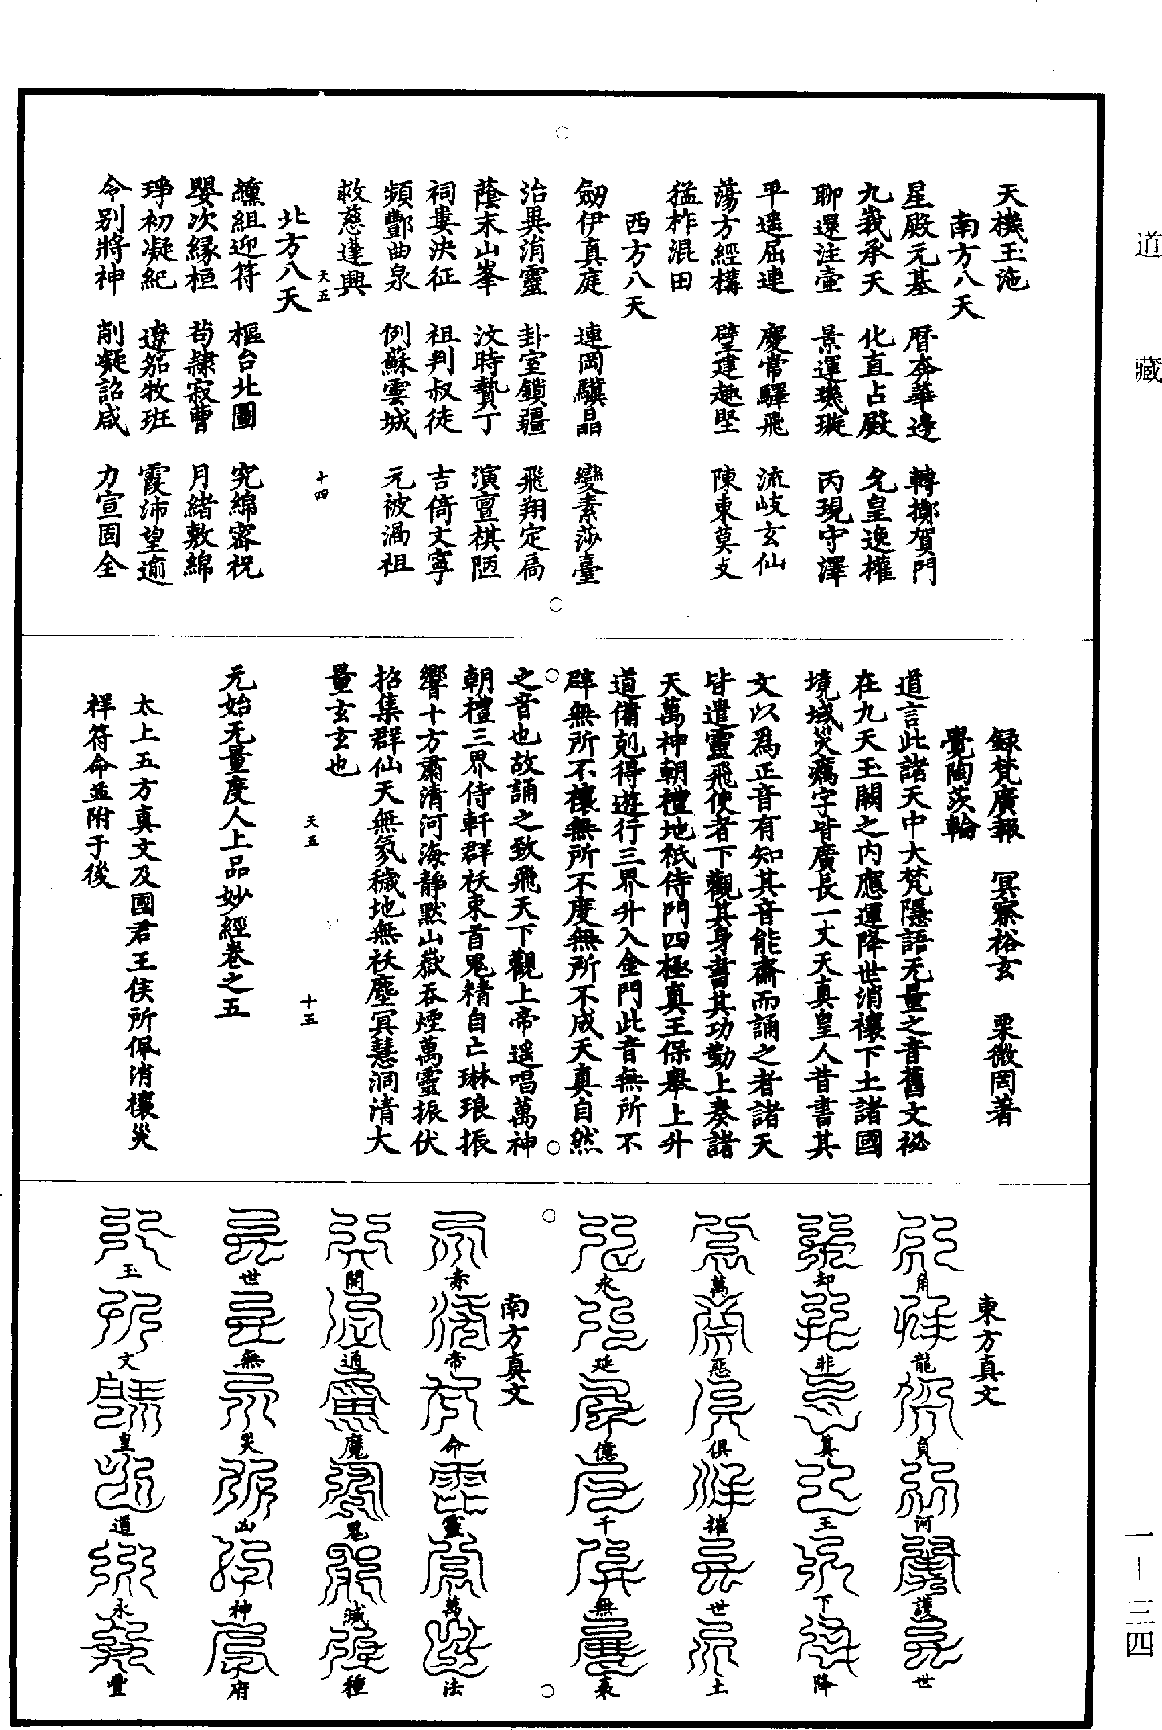 道藏
天機玉沲
南方八天
星殿元基　曆奔華逵　轉擲賀門
九我承天　化直占殿　允皇逸權
聊還注壷　景運璣璇　丙現守澤
平遙屈連　慶常驛飛　流岐玄仙
蕩方經構　壁建趣堅　陳東莫支
猛柞混田
西方八天
劒伊真庭　連岡驥晶　變素莎臺
治異消靈　卦室鎖疆　飛翔定局
蔭末山峯　汶時贄丁　演亶棋陋
祠婁決征　祖判叔徒　吉倚文寧
頻酆曲泉　例蘇雲城　元被渦祖
救慈蓬興
天五　十四
北方八天
纁組迎符　樞台北圖　究綿密祝
嬰次緣桓　苟隸寂曹　月緒敷綿
琤初凝紀　遼笳牧班　霞沛望逾
令别將神　削凝詔咸　力宣固全
録梵廣報　冥察裕玄　栗微岡著
覺陶茨輪
道言此諸天中大梵隱語无量之音舊文祕
在九天王闕之内應運降世消禳下土諸國
境域災癘字皆廣長一丈天真皇人昔書其
文以爲正音有知其音能齋而誦之者諸天
皆遣靈飛使者下觀其身書其功勤上奏諸
天萬神朝禮地祇侍門四極真王保舉上升
道備剋得遊行三界升入金門此音無所不
辟無所不禳無所不度無所不成天真自然
之音也故誦之致飛天下觀上帝遥唱萬神
朝禮三界侍軒群袄束首鬼精自亡琳琅振
響十方肅清河海静默山嶽吞煙萬靈振伏
招集群仙天無氛穢地無袄塵冥慧洞清大
量玄玄也
天五　十五
元始无量度人上品妙經卷之五
太上五方真文及國君王侯所佩消禳災
祥符命並附于後
東方真文
角龍負河護世
却非真王下降
萬惡俱摧世土
永延億千無衰
南方真文
赤帝命靈萬法
開通魔鬼滅種
世無災凶神府
玉文皇道永豐
一—三四